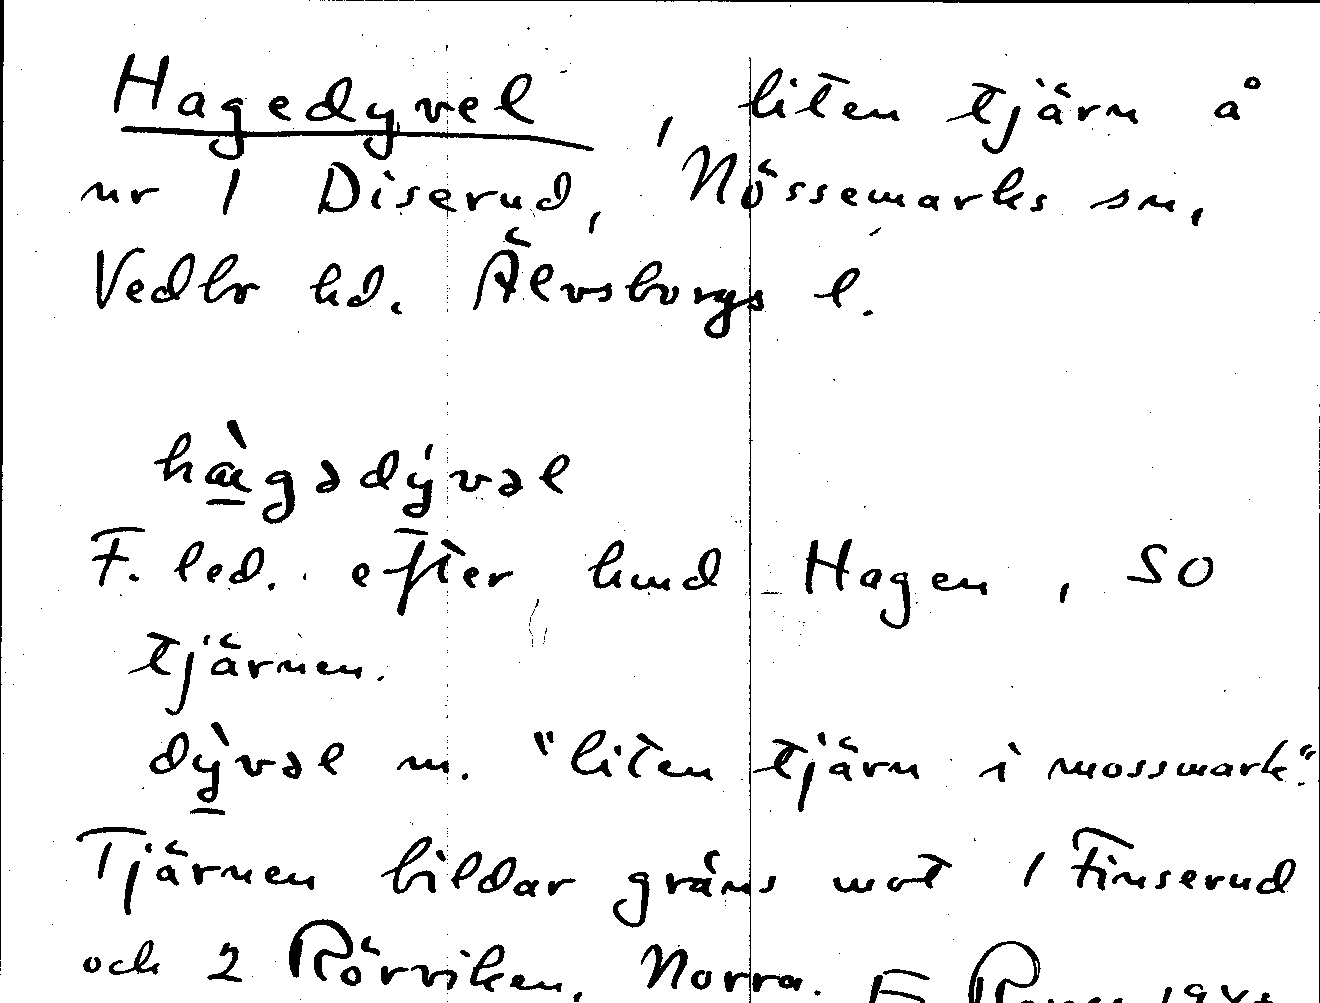 Hagedyvel, liten tjärn å
nr 1 Diserud, Nössemarks sn,
Vedbo hd. Älvsborgs l.
hàgədývəl
F. led. efter lund Hagen, SO
tjärnen.
dỳvəl m. "liten tjärn i mossmark".
Tjärnen bildar gräns mot 1 Finserud
och 2 Rörviken, Norra.